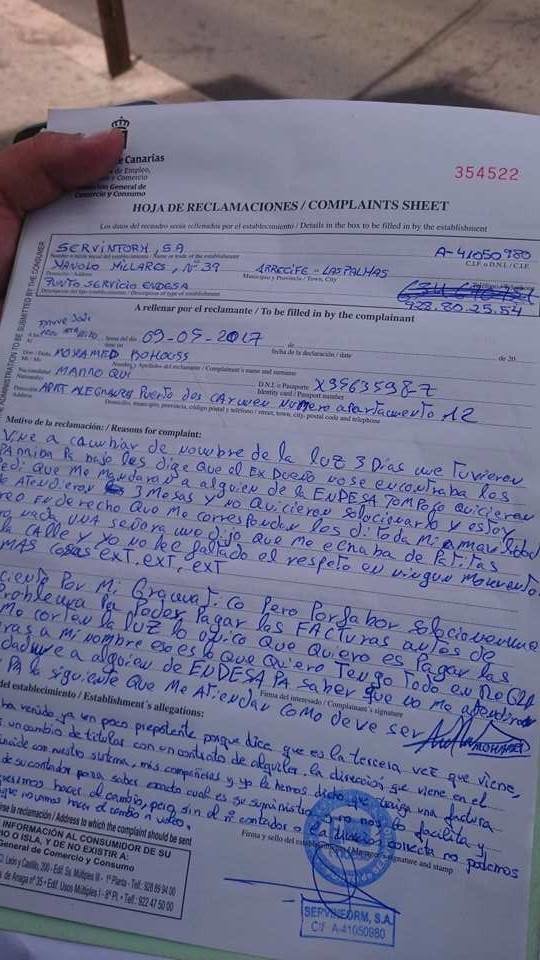 de Canarias
a de Empleo,
y Comercio
ción General de
Comercio y Consumo
354522
HOJA DE RECLAMACIONES / COMPLAINTS SHEET
Los datos del recuadro serán rellenados por el establecimiento / Details in the box to be filled in by the establishment
SERVINFORM, S.A
A-41050980
Nombre o título inicial del establecimiento / Name or trade of the establishment
C.I.F. o D.N.I. / C.I.F.
MANOLO MILLARES, Nº 39
ARRECIFE - LAS PALMAS
Domicilio / Address
Municipio y Provincia / Town, City
PUNTO SERVICIO ENDESA
928.80.25.54
Descripción del tipo establecimiento / Description of type of establishment
A rellenar por el reclamante / To be filled in by the complainant
horas del día 09-05-2017
de
de 20
fecha de la declaración / date
MOHAMED BOHOUSS
Nombre y Apellidos del reclamante / Complainant's name and surname
MARROQUI
D.N.I. o Pasaporte X9963598-7
Identity card / Passport number
APART ALEGRANZA Puerto dos CARMEN Numero apartamento 12
Domicilio, municipio, provincia, código postal y teléfono / street, town, city, postal code and telephone
Motivo de la reclamación: / Reasons for complaint:
VINE a cambiar de nombre de la LUZ 3 Dias me Tuvieron
PA bajo les dige Que el Ex Dueño no se encontraba los
pedi Que Me Mandaran a alguien de la ENDESA TAMPOCO Quicieron
Me ATENDieron 3 Mesas y NO Quicieron solucionarlo y estoy
EN derecho Que Me correspondan los di toda mi amavilidad
nada UNA señora me dijo que Me echaba de PATITAS
la CALLE y Yo no le e fallado el respeto en ningun Momento
MAS cosas exT. exT, exT
Por Mi Pero Porfabor solocionenme
Problema PA Poder Pagar las FACTURAS antes de
Me corten la LUZ lo unico Que Quiero es Pagar las
a Mi nombre eso es lo Que Quiero Tengo Todo en Regla
a alguien de ENDESA PA saber que no me atendieron
PA la siguiente Que Me ATiendan como deve ser
Firma del interesado / Complainant's signature
del establecimiento / Establishment's allegations:
ha venido ya un poco prepotente porque dice que es la tercera vez que viene,
un cambio de titular con un contrato de alquiler, la dirección que viene en el
coincide con nuestro sistema, mis compañeros y yo le hemos dicho que traiga una factura
de su contador para saber exacto cual es su suministro y no nos lo facilita y
queremos hacer el cambio, pero sin el nº contador o la dirección correcta no podemos
que no vamos hacer el cambio a voleo.
Firma y sello del establecimiento / Manager's signature and stamp
se la reclamación / Address to which the complaint should be sent
INFORMACIÓN AL CONSUMIDOR DE SU
O ISLA, Y DE NO EXISTIR A:
General de Comercio y Consumo
León y Castillo, 200 - Edf. Ss. Múltiples III - 1ª Planta - Telf.: 928 89 94 00
de Anaga nº 35 - Edf. Usos Múltiples I - 9ª Pl. - Telf.: 922 47 50 00
SERVINFORM, S.A.
CIF A-41050980